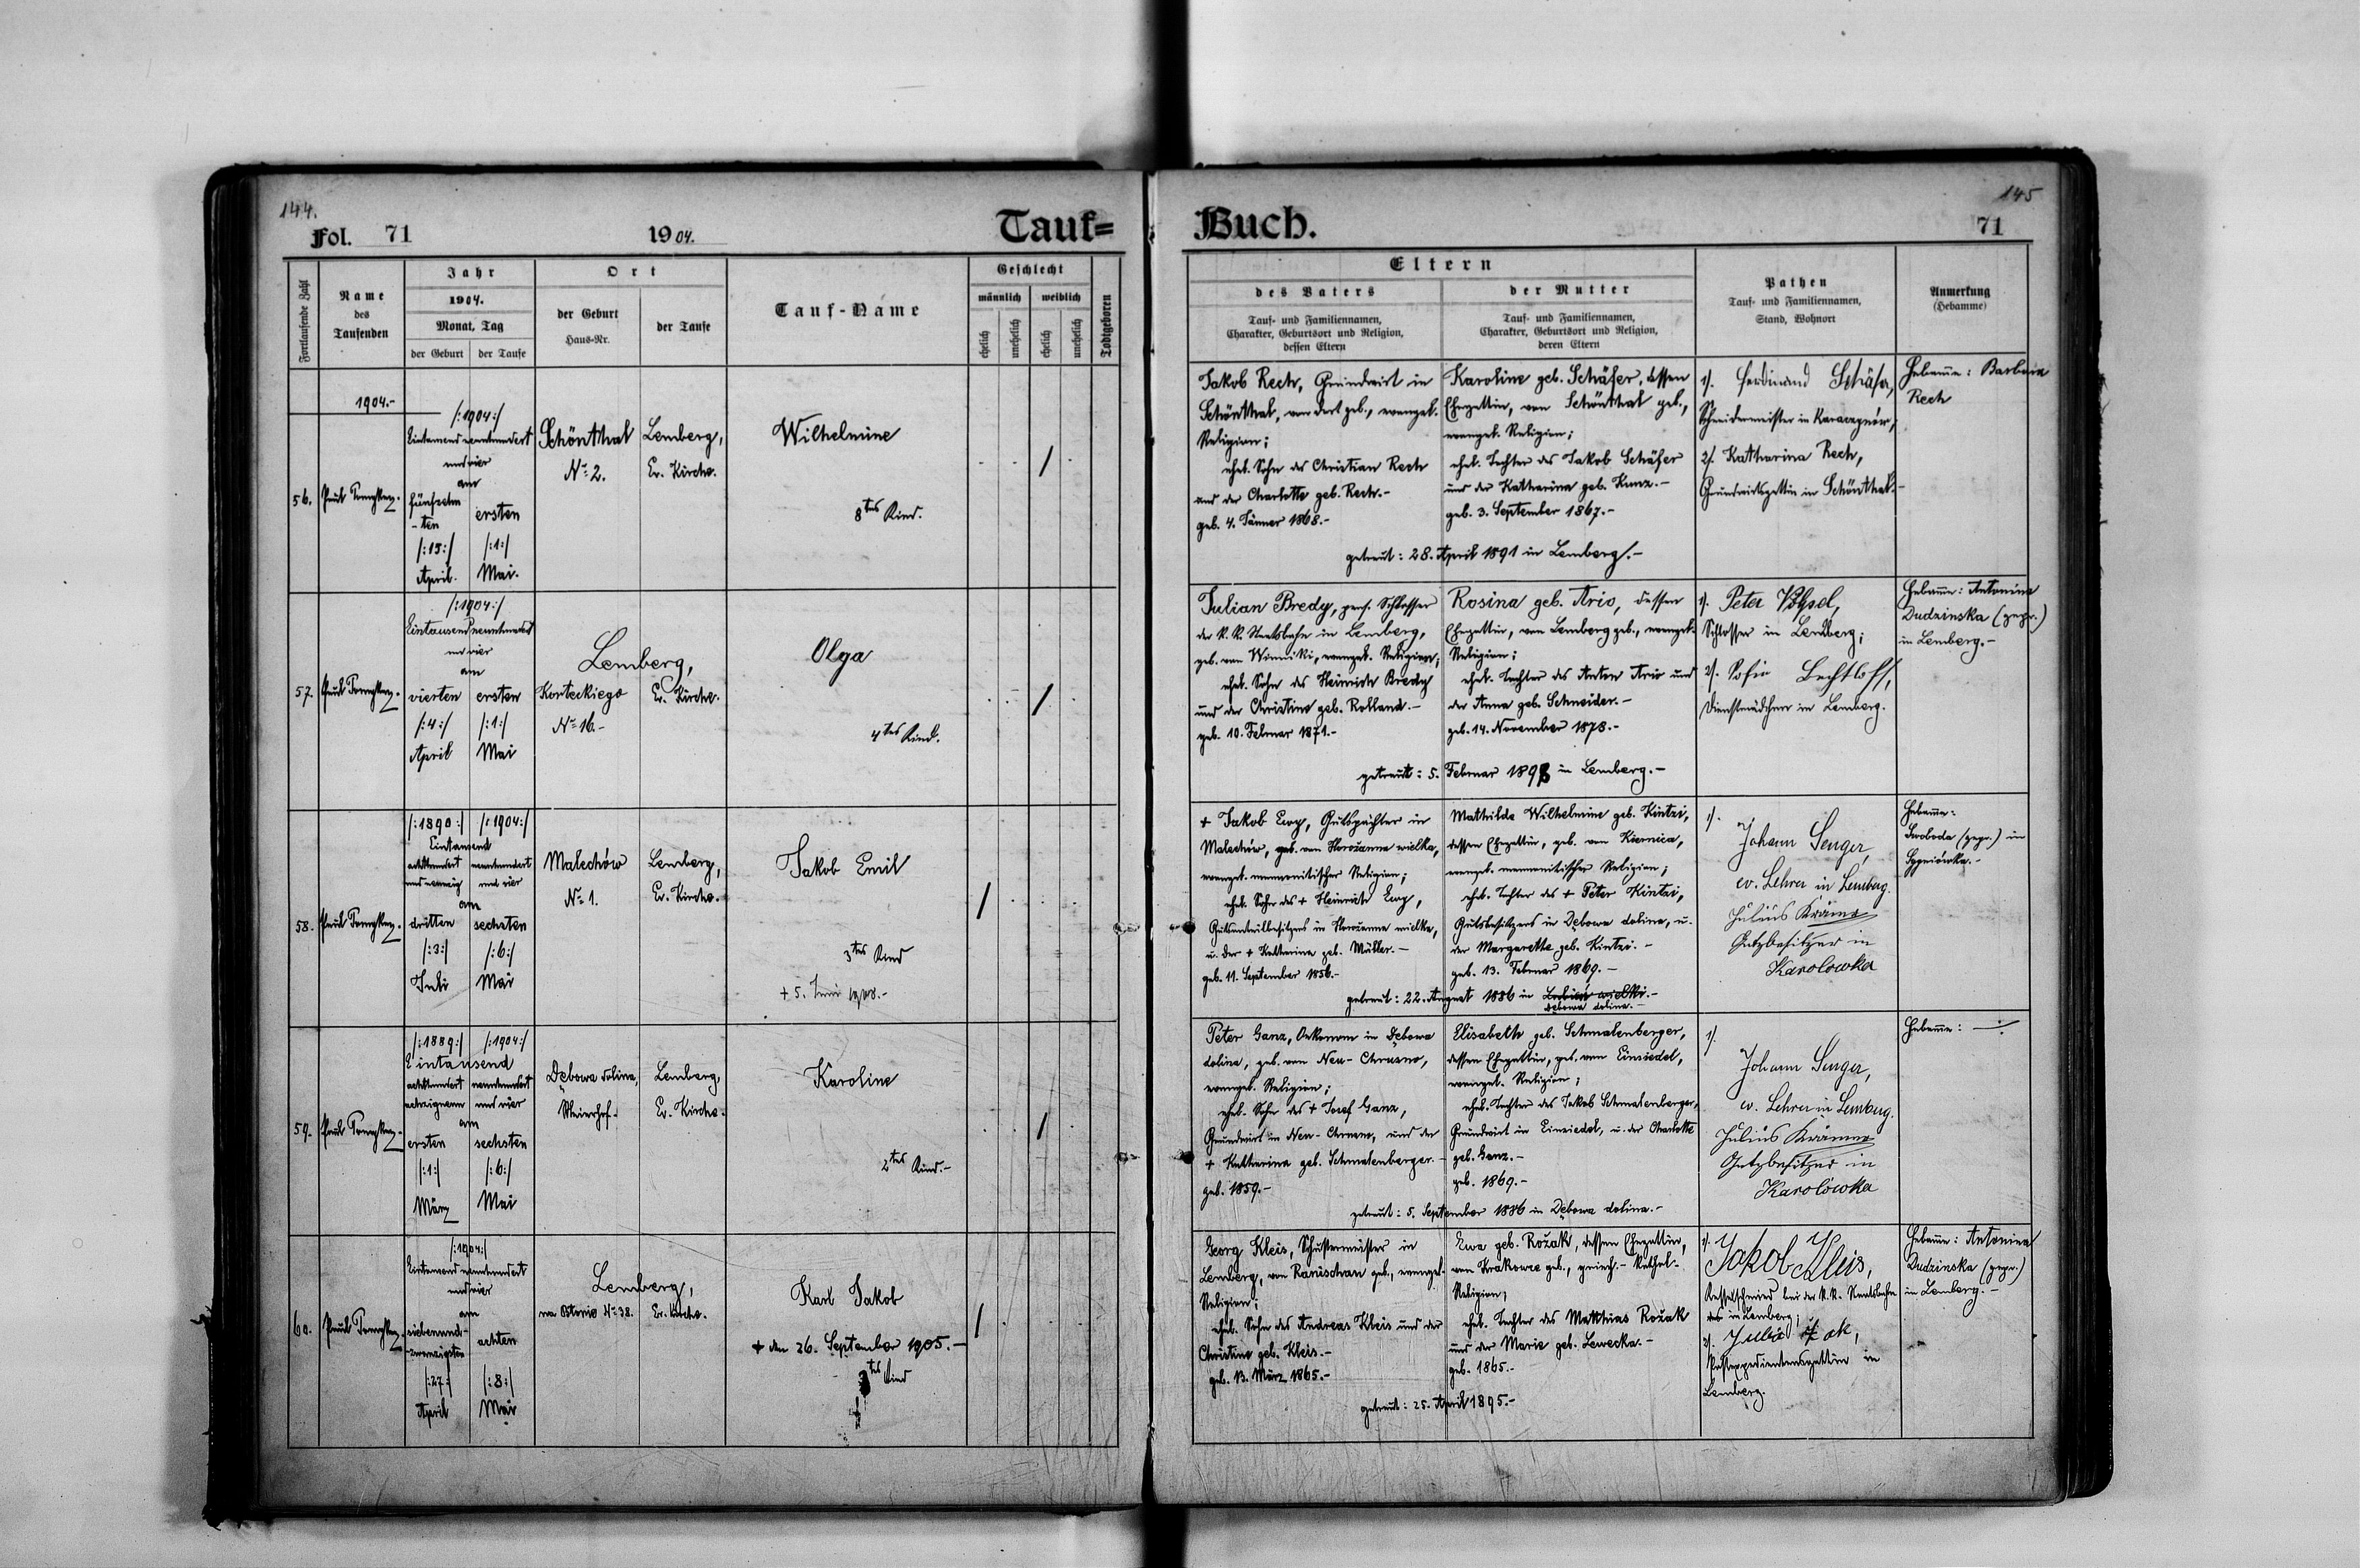 144.
Fol. 71
1904.
Tauf=
Fortlaufende Zahl
Name
des
Taufenden
Jahr
1904.
Monat, Tag
der Geburt
der Taufe
Ort
der Geburt
Haus-Nr.
der Taufe
Tauf-Name
Geschlecht
männlich
weiblich
ehelich
unehelich
ehelich
unehelich
Todtgeboren
1904.-
56.
/:1904:/
Eintausend neunhundert
und vier
am
fünfzehn
-ten
/:15:/
April.
ersten
/:1:/
Mai.
Schönthal
No 2.
Lemberg,
Ev. Kirche.
Wilhelmine
8tes Kind.
57.
/:1904:/
Eintausend neunhundert
und vier
am
vierten
/:4:/
April
ersten
/:1:/
Mai
Lemberg,
Korteckiego
No 16.-
Ev. Kirche.
Olga
4tes Kind.
58.
/:1890:/
/:1904:/
Eintausend
achthundert
und neunzig
neunhundert
und vier
am
dritten
/:3:/
Juli
sechsten
/:6:/
Mai
Malechów
No 1.
Lemberg,
Ev. Kirche.
Jakob Emil
3tes Kind
+ 5. Juni
59.
/:1889:/
/:1904:/
Eintausend
achthundert
achtzigneun
neunhundert
und vier
am
ersten
/:1:/
März
sechsten
/:6:/
Mai
Dębowa dolina,
Meierhof.
Lemberg,
Ev. Kirche.
Karoline
2tes Kind.-
60.
/:1904:/
Eintausend neunhundert
und vier
am
siebenund-
zwanzigsten
/:27:/
April
achten
/:8:/
Mai
Lemberg,
No 38.
Ev. Kirche.
Karl Jakob
+ den 26. September 1905.-
Kind
Buch.
145
71
Eltern
des Vaters
Tauf- und Familiennamen,
Charakter, Geburtsort und Religion,
dessen Eltern
der Mutter
Tauf- und Familiennamen,
Charakter, Geburtsort und Religion,
deren Eltern
Pathen
Tauf- und Familiennamen,
Stand, Wohnort
Anmerkung
(Hebamme)
Jakob Rech, Grundwirt in
Schönthal, von dort geb., evangel.
Religion;
ehel. Sohn des Christian Rech
und der Charlotte geb. Rech.-
geb. 4. Jänner 1868.-
Karoline geb. Schäfer, dessen
Ehegattin, von Schönthal geb.,
evangel. Religion;
ehel. Tochter des Jakob Schäfer
und der Katharina geb. Kunz.-
geb. 3. September 1867.-
getraut: 28. April 1891 in Lemberg.-
1/. Ferdinand Schäfer,
Schneidermeister in
2/. Katharina Rech,
Grundwirtsgattin in Schönthal.-
Hebamme: Barbara
Rech
Julian Bredy, Schlosser
der k. k. Staatsbahn in Lemberg,
geb. von Winniki, evangel. Religion;
ehel. Sohn des Heinrich Bredy
und der Christine geb. Rolland.-
geb. 10. Februar 1871.-
Rosina geb. Ario, dessen
Ehegattin, von Lemberg geb., evangel.
Religion;
ehel. Tochter des Anton Ario und
der Anna geb. Schneider.-
geb. 14. November 1878.-
getraut: 5. Februar 1898 in Lemberg.-
1/. Peter
Schlosser in Lemberg;
2/. Sofie Bechtloff,
Dienstmädchen in Lemberg.
Hebamme: Antonina
Dudzinska (gepr.)
in Lemberg.-
+ Jakob Ewy, Gutspächter in
Malechów, geb. von Horożanna wielka,
evangel. mennonitischer Religion;
ehel. Sohn des + Heinrich Ewy,
Gutsanteilbesitzers in Horożanna wielka,
u. der + Katharina geb. Müller.-
geb. 11. September 1856.-
Mathilde Wilhelmine geb. Kintzi,
dessen Ehegattin, geb. von Kiernica,
evangel. mennonitischer Religion;
ehel. Tochter des + Peter Kintzi,
Gutsbesitzers in Dębowa dolina, u.
der Margarethe geb. Kintzi.-
geb. 13. Februar 1869.-
getraut: 22. August 1886 in
Dębowa dolina.-
1/.
Johann Senger,
ev. Lehrer in Lemberg.
Julius
Gutsbesitzer in
Karolowka
Hebamme:
Swoboda (gepr.) in
Sygniówka.-
Peter Ganz, Oekonom in Dębowa
dolina, geb. von Neu-Chrusno,
evangel. Religion;
ehel. Sohn des + Josef Ganz,
Grundwirt in Neu-Chrusno, und der
+ Katharina geb. Schmalenberger.-
geb. 1859.-
Elisabeth geb. Schmalenberger,
dessen Ehegattin, geb. von Einsiedel,
evangel. Religion;
ehel. Tochter des Jakob Schmalenberger,
Grundwirt in Einsiedel, u. der Charlotte
geb. Ganz.-
geb. 1869.-
getraut: 5. September 1886 in Dębowa dolina.-
1/.
Johann Senger,
ev. Lehrer in Lemberg.
Julius
Gutsbesitzer in
Karolówka
Hebamme:
Georg Kleis, Schustermeister in
Lemberg, von Ranischau geb., evangel.
Religion;
ehel. Sohn des Andreas Kleis und der
Christine geb. Kleis.-
geb. 13. März 1865.-
Ewa geb. Rożak, dessen Ehegattin,
von Krakowze geb., griech.-kathol.
Religion;
ehel. Tochter des Matthias Rożak
und der Marie geb. Lewecka.-
geb. 1865.-
getraut: 25. April 1895.-
1/. Jakob Kleis,
Kesselschmied bei der k. k. Staatsbahn
in Lemberg;
2/. Julia
in
Lemberg.
Hebamme: Antonina
Dudzinska (gepr.)
in Lemberg.-